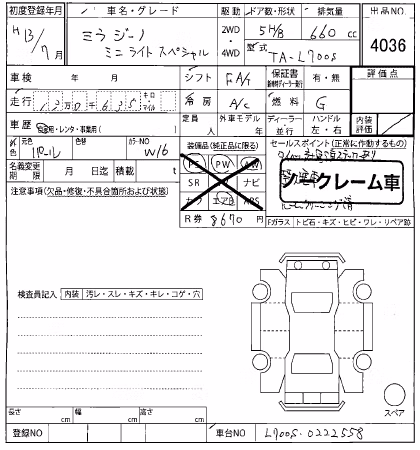 初度登録年月 車名・グレード 駆動 ドア数・形状 排気量 出品NO
H13/7月 ミラジーノ ミニライトスペシャル 2WD・4WD 5H/B 660 cc 4036
型式 TA-L700S
車検 年 月 シフト FAT 保証書 有・無 評価点
走行 キロ マイル 冷房 A/C 燃料 G
車歴 自家用・レンタ・事業用( ) 定員 人 外車モデル 年 ディーラー 並行 ハンドル 左・右 内装評価
外色 元色 パール 色替 カラーNO W16 装備品(純正品に限る) セールスポイント(正常に作動するもの)
PS PW AW
名義変更期限 月 日迄 積載 t SR 革 ナビ
ノークレーム車
注意事項(欠品・修復・不具合箇所および状態) カブ エアB ABS
R券 8670 円 Fガラス トビ石・キズ・ヒビ・ワレ・リペア跡
検査員記入 内装 汚レ・スレ・キズ・キレ・コゲ・穴
スペア
長さ cm 幅 cm 高さ cm
登録NO 車台NO L700S-0222558